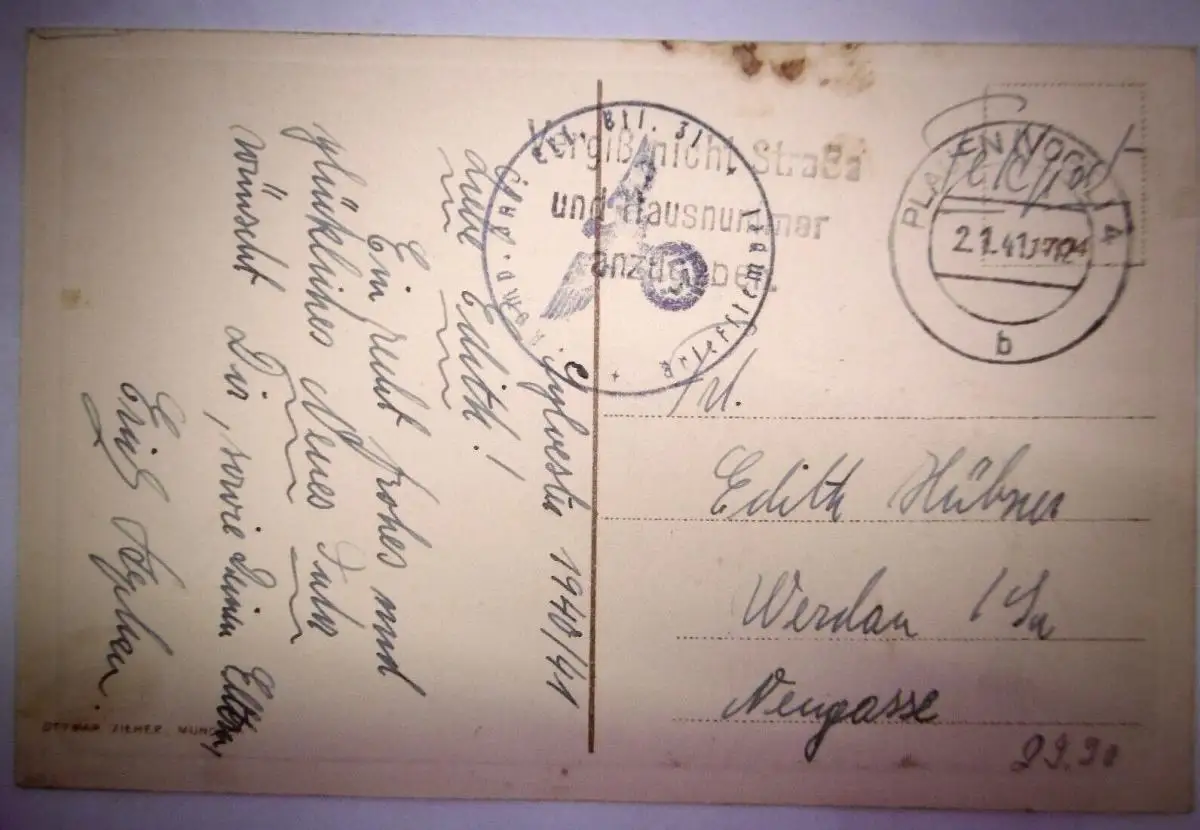 Sylvester 1940/41
Liebe Edith!
Ein recht frohes und
glückliches Neues Jahr
wünscht Dir, sowie Deinen Eltern,
Erich
Vergiß nicht Straße
und Hausnummer
anzugeben.
Briefstempel
PLAUEN (VOGTL) 4
2.1.41
b
Frl.
Edith Hübner
Werdau i/Sa
Neugasse
OTTMAR ZIEHER, MÜNCH